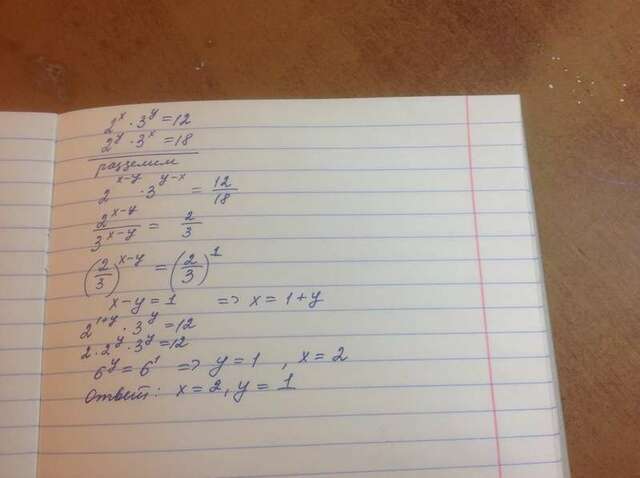 2^x · 3^y = 12
2^y · 3^x = 18
разделим
2^(x-y) · 3^(y-x) = 12/18
2^(x-y)/3^(x-y) = 2/3
(2/3)^(x-y) = (2/3)^1
x-y = 1 => x = 1+y
2^(1+y) · 3^y = 12
2 · 2^y · 3^y = 12
6^y = 6^1 => y = 1, x = 2
Ответ: x = 2, y = 1